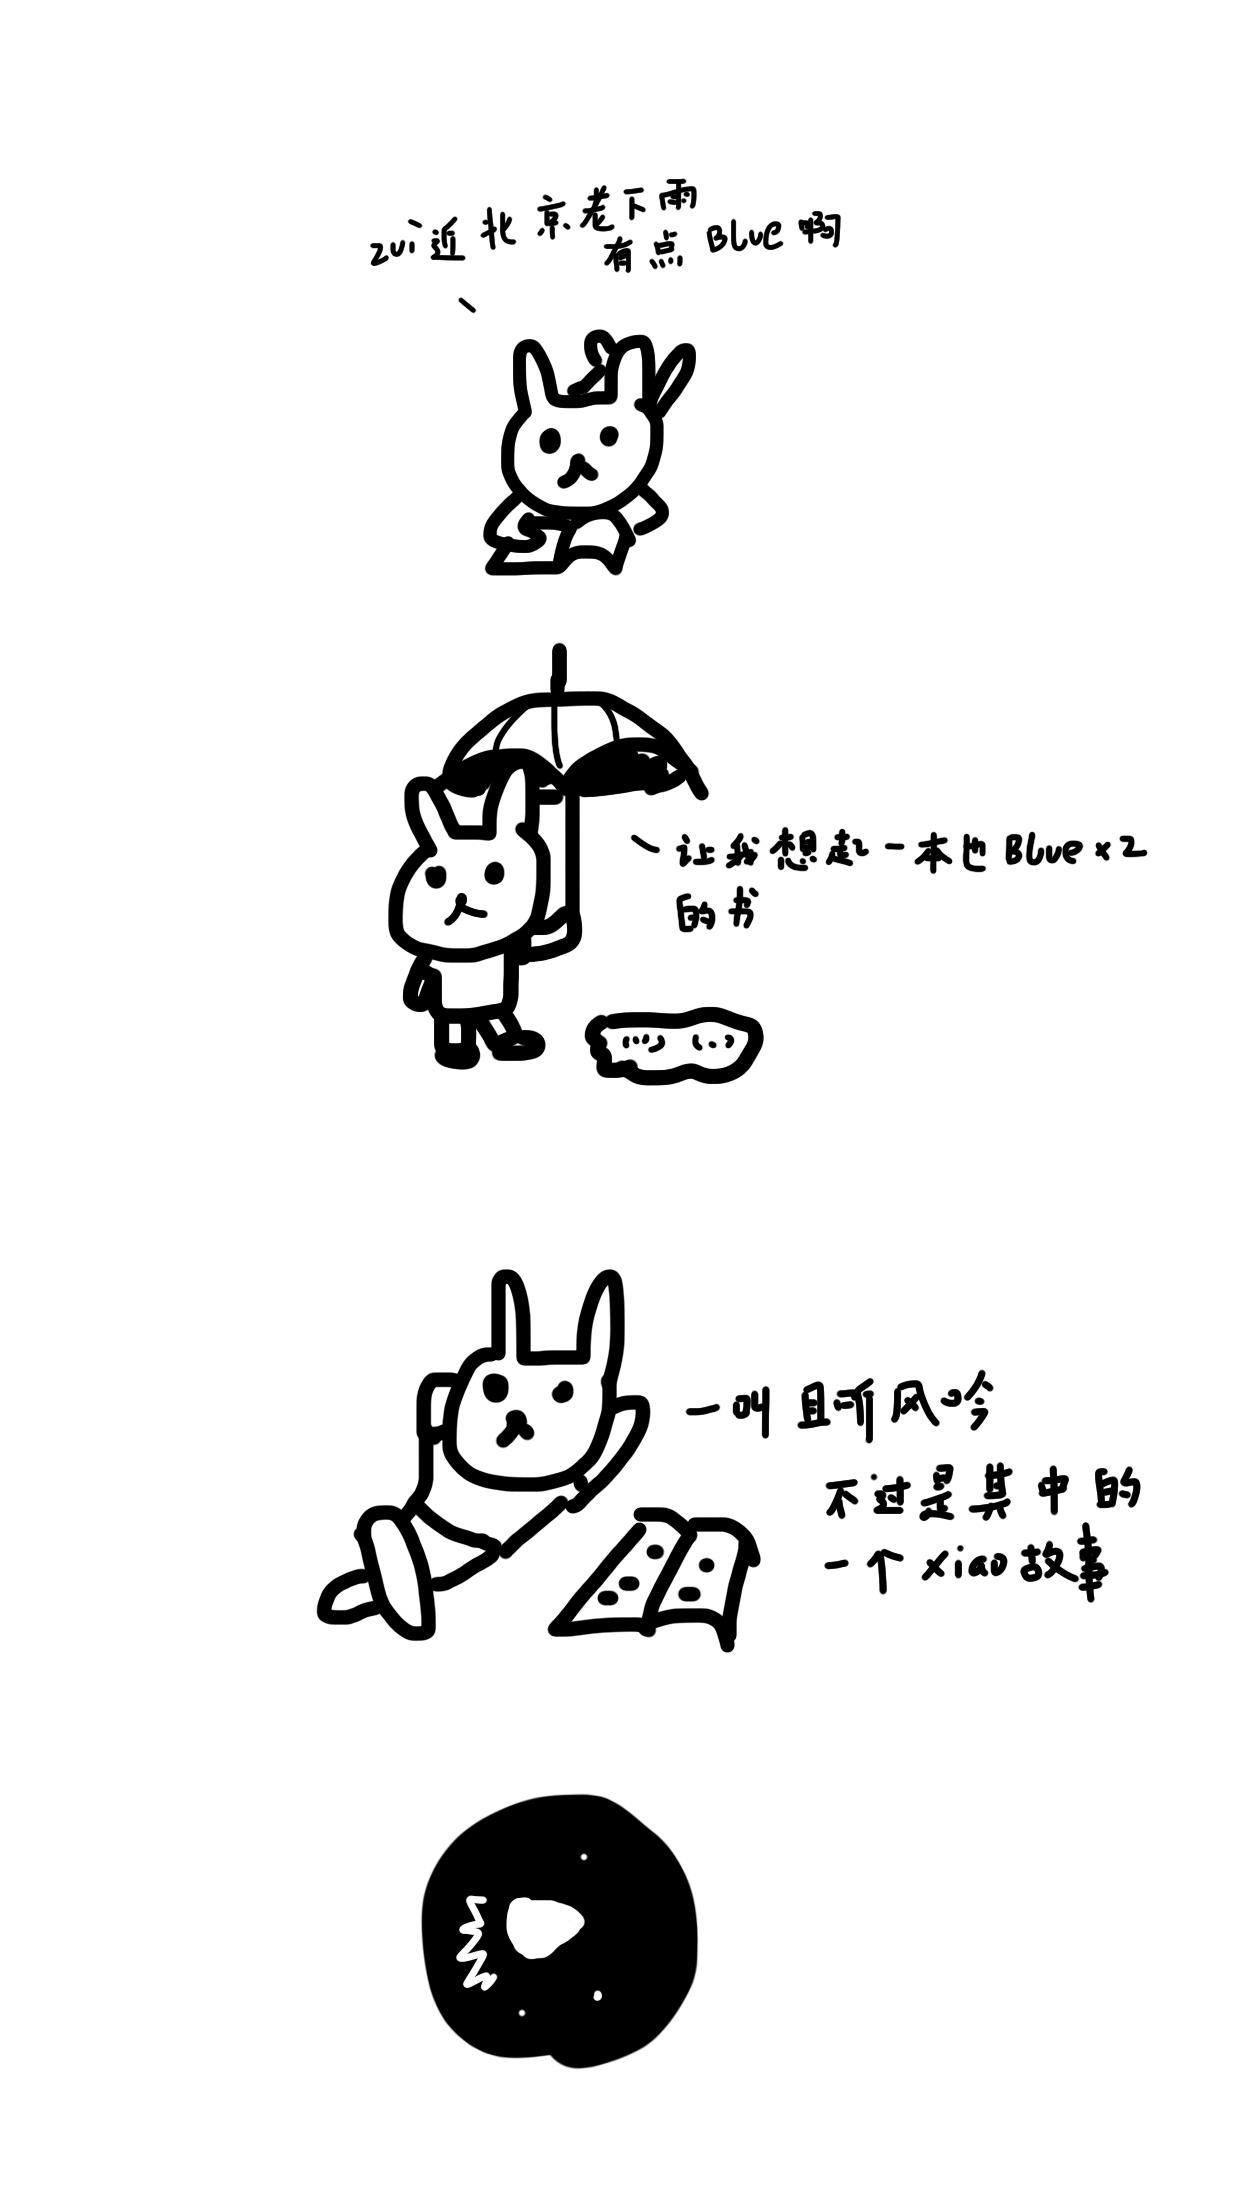 zui近北京老下雨
有点Blue啊
让我想起一本也Bluex2
的书
一叫且听风吟
不过是其中的
一个xiao故事